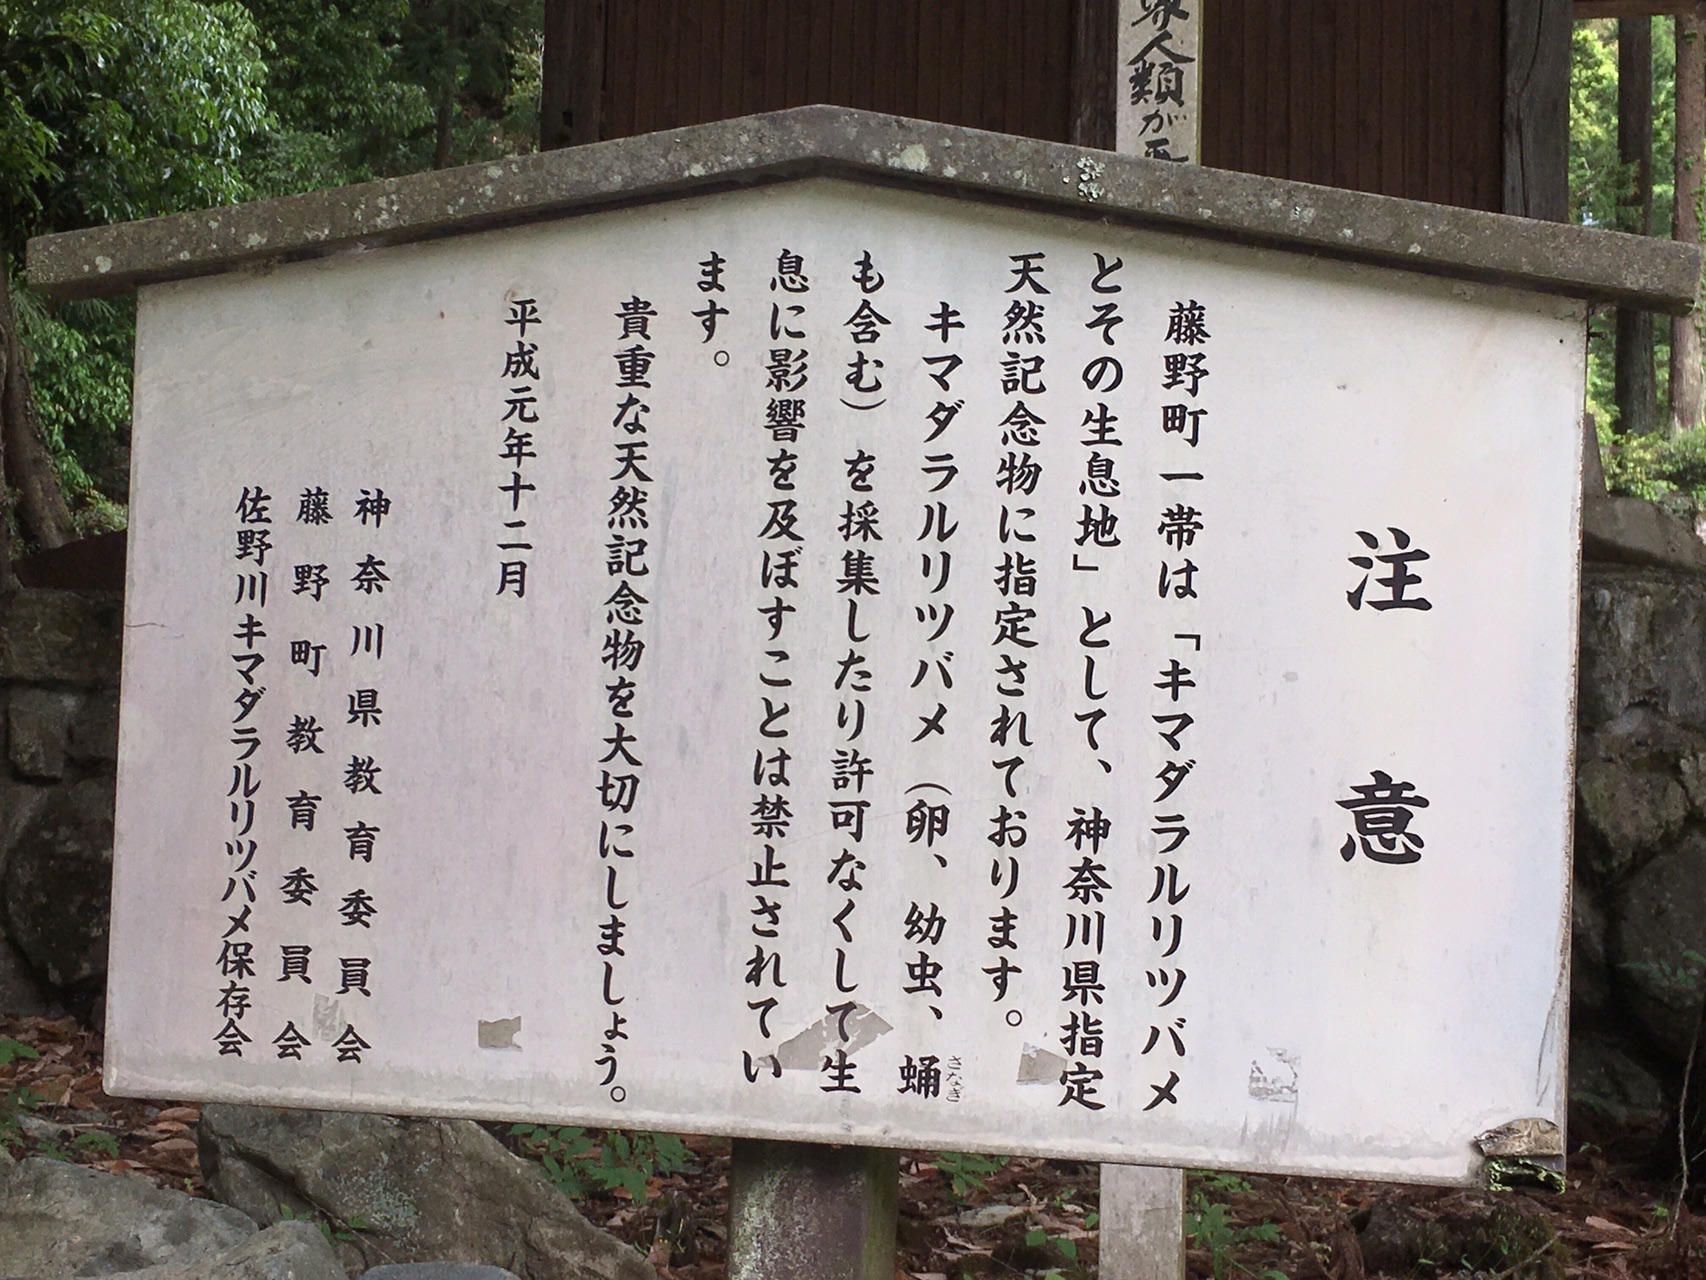 注意
藤野町一帯は「キマダラルリツバメ
とその生息地」として、神奈川県指定
天然記念物に指定されております。
キマダラルリツバメ（卵、幼虫、蛹
さなぎ
も含む）を採集したり許可なくして生
息に影響を及ぼすことは禁止されてい
ます。
貴重な天然記念物を大切にしましょう。
平成元年十二月
神奈川県教育委員会
藤野町教育委員会
佐野川キマダラルリツバメ保存会
人類が